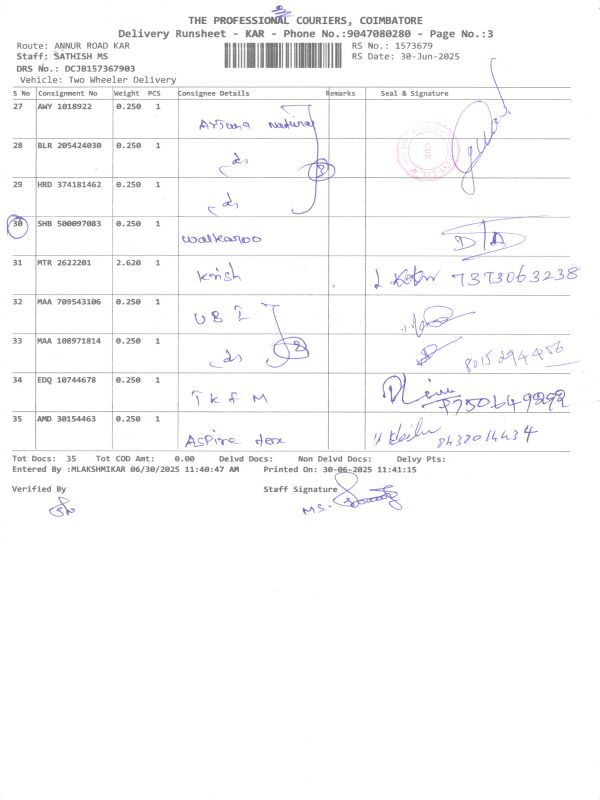 THE PROFESSIONAL COURIERS, COIMBATORE
Delivery Runsheet - KAR - Phone No.:9047080280 - Page No.:3
Route: ANNUR ROAD KAR RS No.: 1573679
Staff: SATHISH MS RS Date: 30-Jun-2025
DRS No.: DCJB157367903
Vehicle: Two Wheeler Delivery
S No Consignment No Weight PCS Consignee Details Remarks Seal & Signature
27 AWY 1018922 0.250 1
28 BLR 205424030 0.250 1
29 HRD 374181462 0.250 1
30 SHB 500097083 0.250 1
walkaroo
31 MTR 2622201 2.620 1
Krish 7373063238
32 MAA 709543106 0.250 1
33 MAA 108971814 0.250 1
34 EDQ 10744678 0.250 1
35 AMD 30154463 0.250 1
Aspire
Tot Docs: 35 Tot COD Amt: 0.00 Delvd Docs: Non Delvd Docs: Delvy Pts:
Entered By :MLAKSHMIKAR 06/30/2025 11:40:47 AM Printed On: 30-06-2025 11:41:15
Verified By Staff Signature
MS.